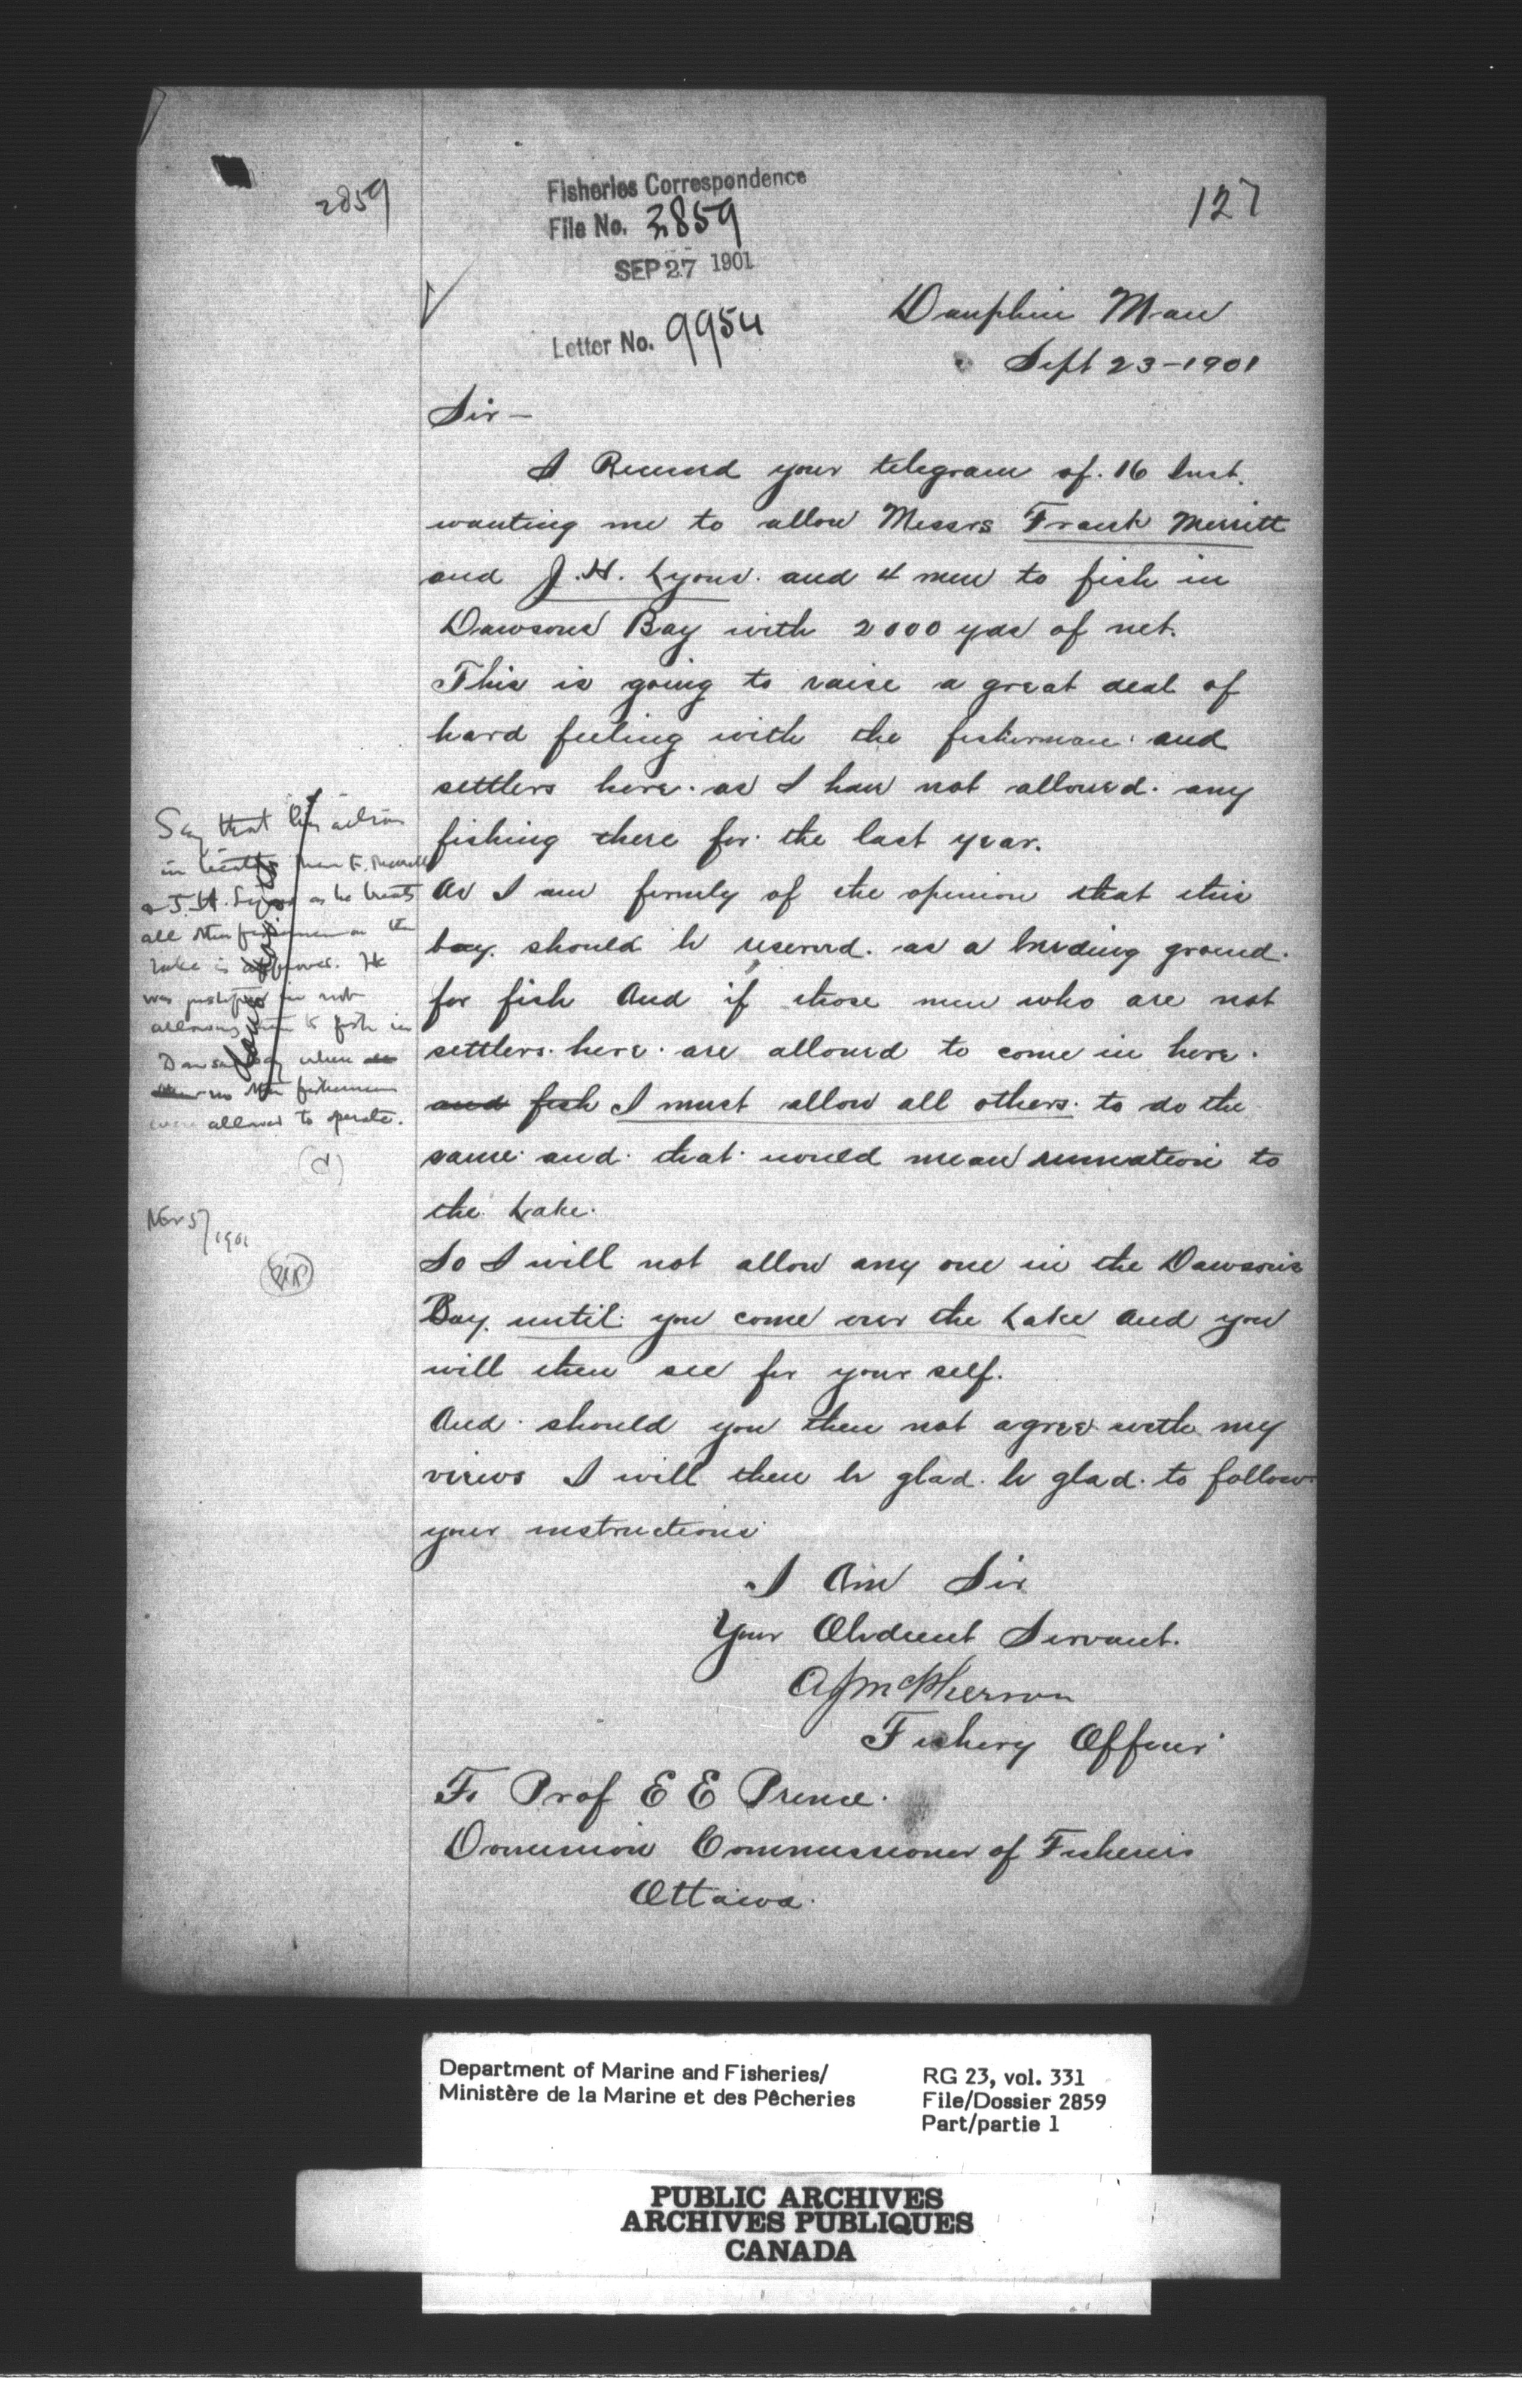 2859
Fisheries Correspondence
File No. 2859
SEP 27 1901
Letter No. 9954
127
Dauphin Man
Sept 23-1901
Sir —
I Received your telegram of. 16 Inst.
wanting me to allow Messrs Frank Merritt
and J. H. Lyons. and 4 men to fish in
Dawsons Bay with 2000 yds of net.
This is going to raise a great deal of
hard feeling with the fisherman and
settlers here. as I have not allowed. any
fishing there for the last year.
As I am firmly of the opinion that this
bay. should be reserved. as a breeding ground.
for fish And if those men who are not
settlers. here. are allowed to come in here.
and fish I must allow all others. to do the
same and that would mean ruination to
the Lake.
So I will not allow any one in the Dawsons
Bay. until you come over the Lake And you
will then see for your self.
And should you then not agree with my
views I will then be glad. be glad. to follow
your instructions
I Am Sir
Your Obedient Servant.
A J McPherson
Fishery Officer
To Prof E E Prince.
Dominion Commissioner of Fisheries
Ottawa.
Say that his action
in them F. Merrell
& J. H. Lyons as he treats
all other fishermen on the
Lake is approved. He
was justified in not
allowing them to fish in
Dawson Bay when
no other fishermen
were allowed to operate.
Nov 5/1901
Department of Marine and Fisheries/
Ministère de la Marine et des Pêcheries
RG 23, vol. 331
File/Dossier 2859
Part/partie 1
PUBLIC ARCHIVES
ARCHIVES PUBLIQUES
CANADA